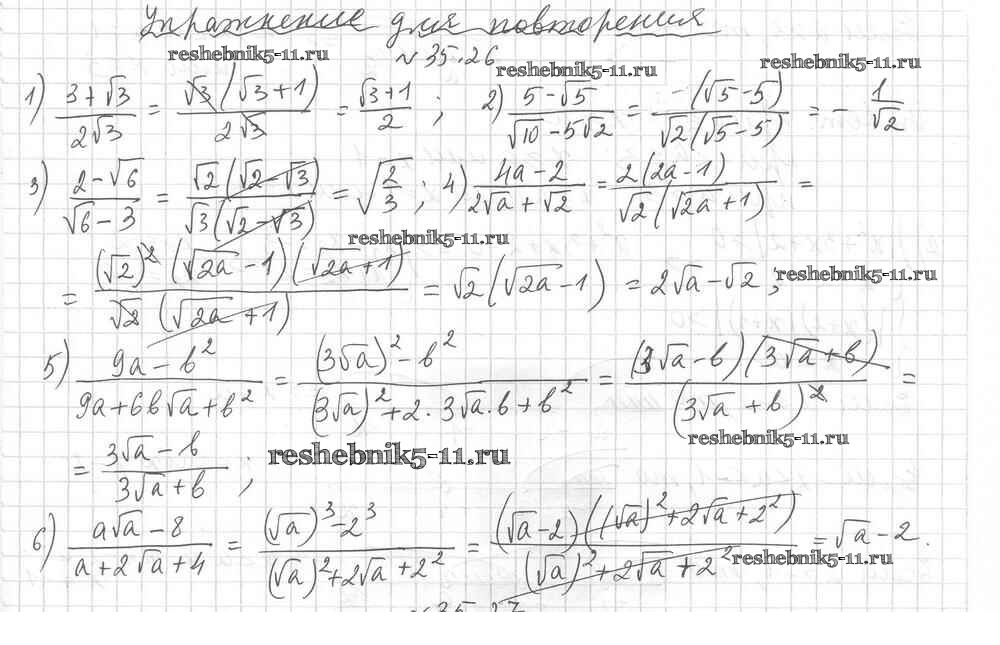 Упражнение для повторения
reshebnik5-11.ru
№ 35.26
reshebnik5-11.ru
reshebnik5-11.ru
1) (3+√3)/(2√3) = (√3(√3+1))/(2√3) = (√3+1)/2 ; 2) (5-√5)/(√10-5√2) = (-(√5-5))/(√2(√5-5)) = -1/√2
3) (2-√6)/(√6-3) = (√2(√2-√3))/(√3(√2-√3)) = √(2/3) ; 4) (4a-2)/(2√a+√2) = (2(2a-1))/(√2(√2a+1)) =
reshebnik5-11.ru
= ((√2)²(√2a-1)(√2a+1))/(√2(√2a+1)) = √2(√2a-1) = 2√a-√2 ;
reshebnik5-11.ru
5) (9a-b²)/(9a+6b√a+b²) = ((3√a)²-b²)/((3√a)²+2·3√a·b+b²) = ((3√a-b)(3√a+b))/((3√a+b)²) =
reshebnik5-11.ru
= (3√a-b)/(3√a+b) ;
reshebnik5-11.ru
6) (a√a-8)/(a+2√a+4) = ((√a)³-2³)/((√a)²+2√a+2²) = ((√a-2)((√a)²+2√a+2²))/((√a)²+2√a+2²) = √a-2.
reshebnik5-11.ru
№ 35.27